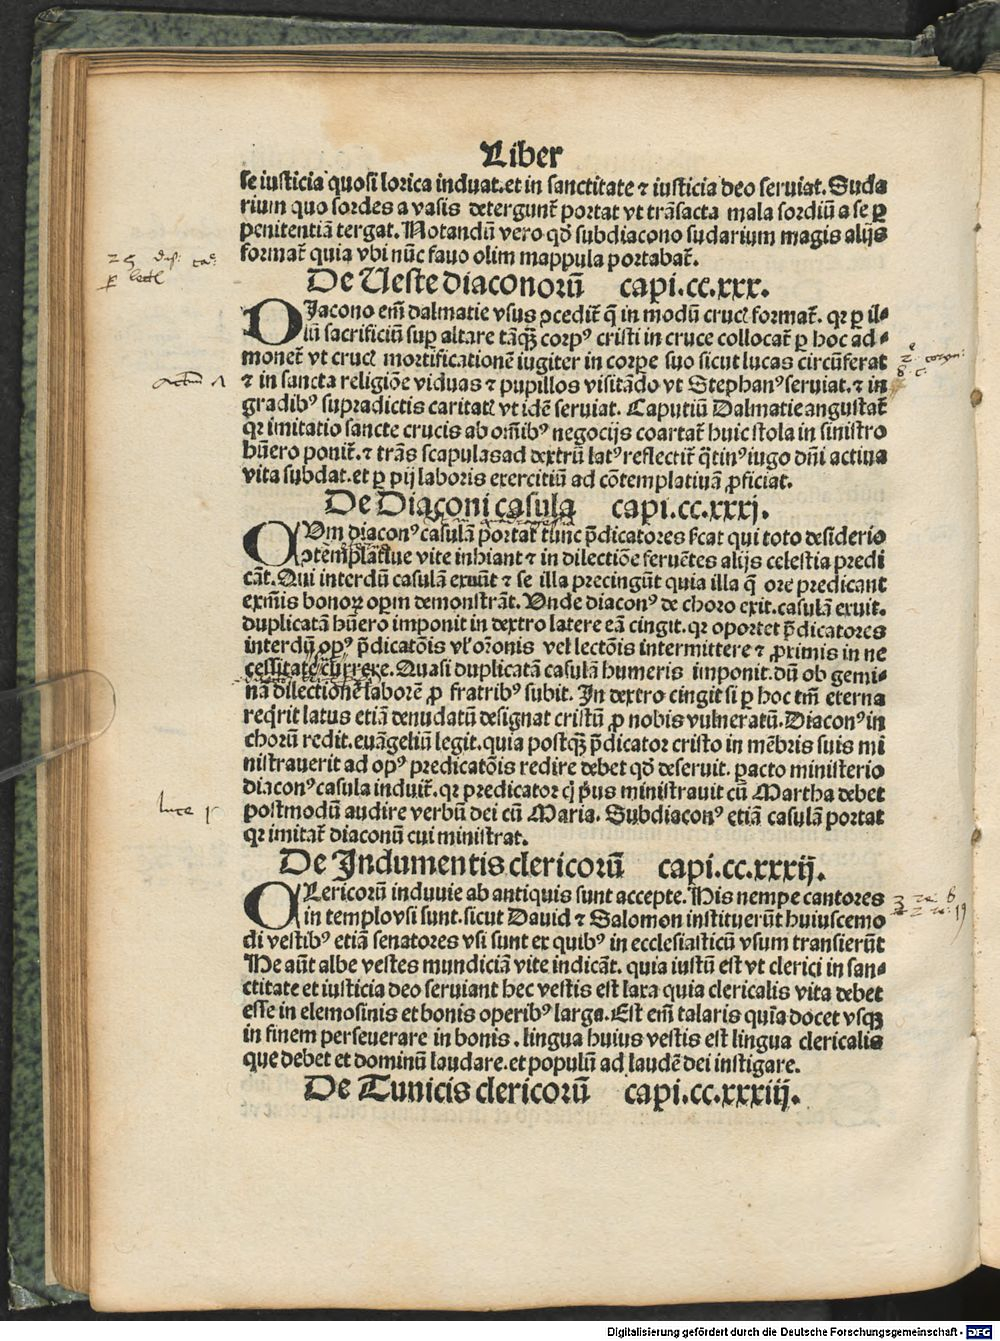 Liber
se iusticia quosi lorica induat.et in sanctitate ⁊ iusticia deo seruiat.Suda
rium quo sordes a vasis detergunt̄ portat vt trāsacta mala sordiū a se ꝑ
penitentiā tergat.Notandū vero qđ subdiacono sudarium magis alijs
format̄ quia vbi nūc fauo olim mappula portabat̄.
De Ueste diaconorū capi.cc.xxx.
DJacono em̄ dalmatie vsus ꝓcedit̄ q̄ in modū crucꝭ format̄. qꝛ ꝑ il⸗
lū sacrificiū sup̄ altare tāqꝫ corpꝰ cristi in cruce collocat̄ ꝑ hoc ad⸗
monet̄ vt crucꝭ mortificationē iugiter in corpe suo sicut lucas circūferat
⁊ in sancta religiōe viduas ⁊ pupillos visitādo vt Stephanꝰ seruiat.⁊ in
gradibꝰ supradictis caritatꝭ vt idē seruiat. Caputiū Dalmatie angustat̄
qꝛ imitatio sancte crucis ab om̄ibꝰ negocijs coartat̄ huic stola in sinistro
hūero ponit̄.⁊ trās scapulas ad dextrū latꝰ reflectit̄ q̄tinꝰ iugo dn̄i actiua
vita subdat.et ꝑ pij laboris exercitiū ad cōtemplatiuā ꝓficiat.
De Diaconi casula capi.cc.xxxj.
CUm diaconꝰ casulā portat̄ tunc p̄dicatores s̄cat qui toto desiderio
ↄtēplatiue vite inhiant ⁊ in dilectiōe feruētes alijs celestia predi
cāt.Qui interdū casulā exuūt ⁊ se illa precingūt quia illa q̄ ore predicant
exīmis bonoꝝ opm demonstrāt.Unde diaconꝰ de choro exit.casulā exuit.
duplicatā hūero imponit in dextro latere eā cingit.qꝛ oportet p̄dicatores
interdū opꝰ p̄dicatōis vl̓ or̄onis vel lectōis intermittere ⁊ ꝓximis in ne
cessitate currere.Quasi duplicatā casulā humeris imponit.dū ob gemi⸗
nā dilectionē laborē ꝓ fratribꝰ subit. In dextro cingit si ꝑ hoc tm̄ eterna
reqrit latus etiā denudatū designat cristū ꝓ nobis vulneratū.Diaconꝰ in
chorū redit.euāgeliū legit.quia postqꝫ p̄dicator cristo in mēbris suis mi
nistrauerit ad opꝰ predicatōis redire debet qđ deseruit. pacto ministerio
diaconꝰ casula induit̄.qꝛ predicator q̄ pꝰus ministrauit cū Martha debet
postmodū audire verbū dei cū Maria. Subdiaconꝰ etiā casulā portat
qꝛ imitat̄ diaconū cui ministrat.
De Indumentis clericorū capi.cc.xxxij.
CLericorū induuie ab antiquis sunt accepte.His nempe cantores
in templo vsi sunt.sicut Dauid ⁊ Salomon instituerūt huiuscemo
di vestibꝰ etiā senatores vsi sunt ex quibꝰ in ecclesiasticū vsum transierūt
He aūt albe vestes mundiciā vite indicāt. quia iustū est vt clerici in san⸗
ctitate et iusticia deo seruiant hec vestis est laxa quia clericalis vita debet
esse in elemosinis et bonis operibꝰ larga.Est em̄ talaris quia docet vsqꝫ
in finem perseuerare in bonis. lingua huius vestis est lingua clericalis
que debet et dominū laudare.et populū ad laudē dei instigare.
De Tunicis clericorū capi.cc.xxxiij.
luce
Digitalisierung gefördert durch die Deutsche Forschungsgemeinschaft - DFG